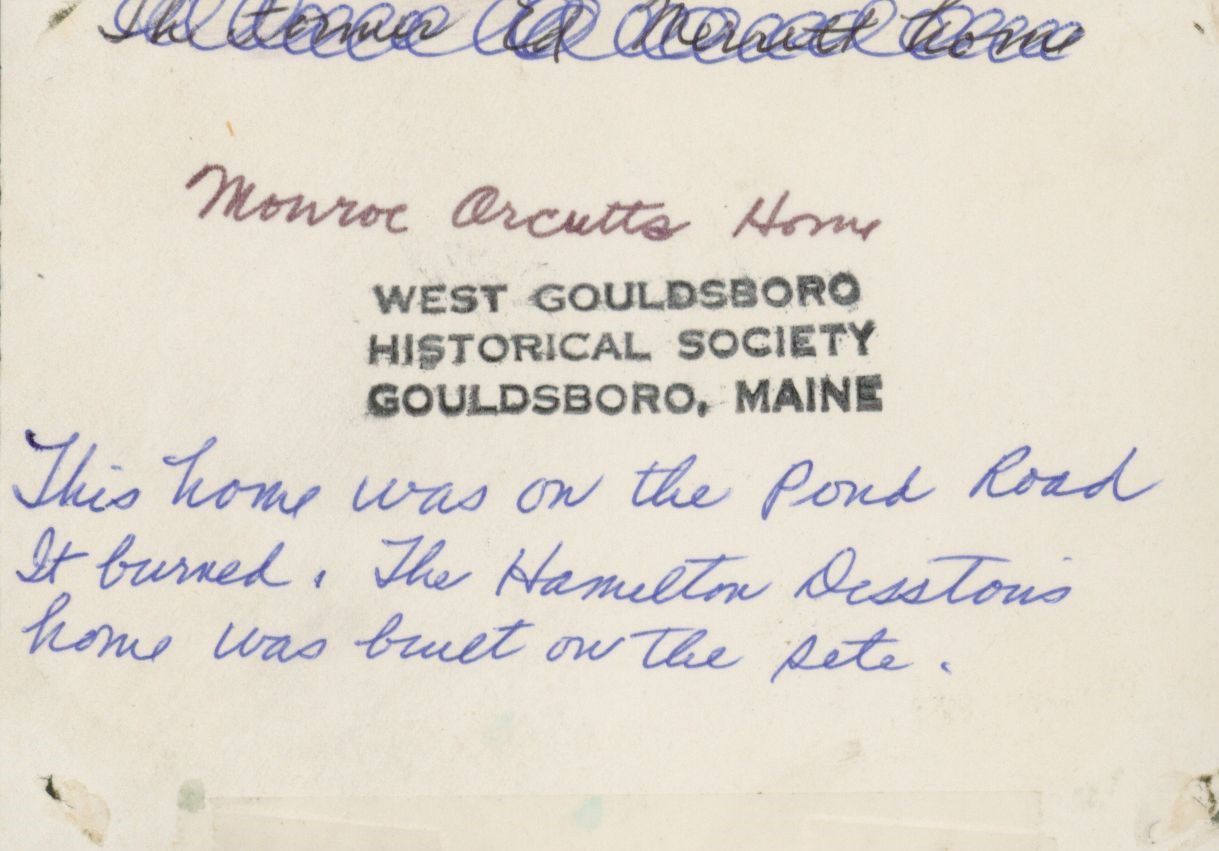 The former Ed Merritt home
Monroe Orcutts Home
WEST GOULDSBORO
HISTORICAL SOCIETY
GOULDSBORO, MAINE
This home was on the Pond Road
It burned. The Hamilton Disstons
home was built on the site.